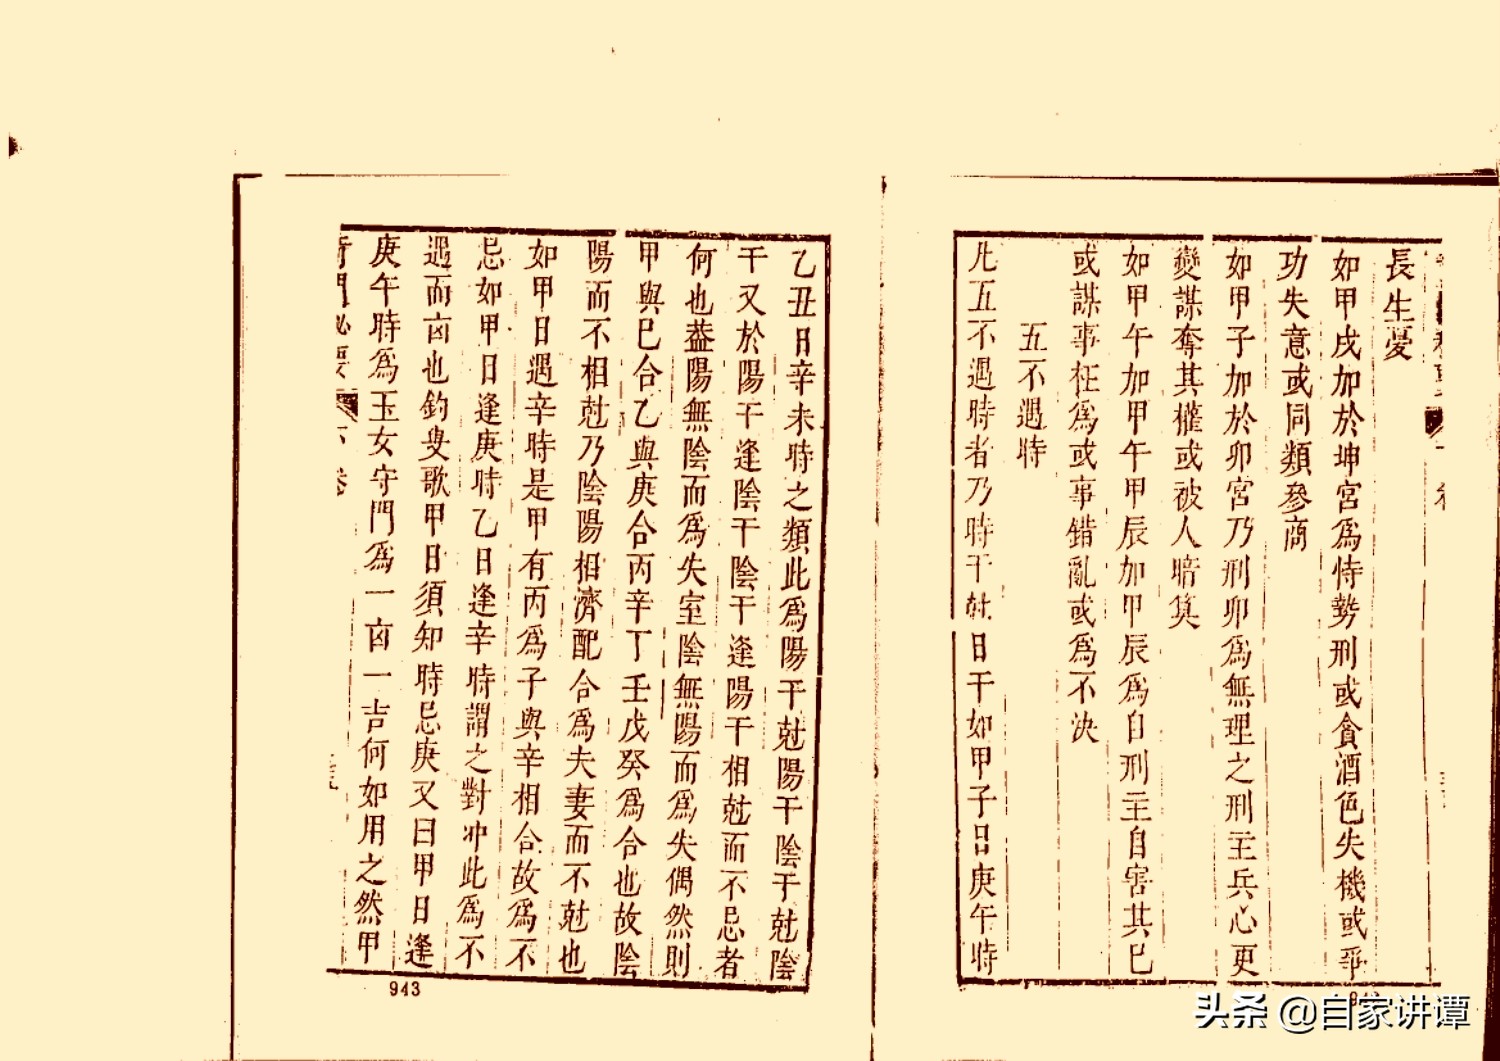 長生憂
如甲戌加於坤宮爲恃勢刑或貪酒色失機或爭
功失意或同類參商
如甲子加於卯宮乃刑卯爲無理之刑主兵心更
變謀奪其權或被人暗箕
如甲午加甲午甲辰加甲辰爲自刑主自害其巳
或謀事枉爲或事錯亂或爲不決
五不遇時
凡五不遇時者乃時干尅日干如甲子日庚午時
乙丑日辛未時之類此爲陽干尅陽干陰干尅陰
干又於陽干逢陰干陰干逢陽干相尅而不忌者
何也葢陽無陰而爲失室陰無陽而爲失偶然則
甲與巳合乙與庚合丙辛丁壬戊癸爲合也故陰
陽而不相尅乃陰陽相濟配合爲夫妻而不尅也
如甲日遇辛時是甲有丙爲子與辛相合故爲不
忌如甲日逢庚時乙日逢辛時謂之對冲此爲不
遇而㐫也釣叟歌甲日須知時忌庚又曰甲日逢
庚午時爲玉女守門爲一㐫一吉何如用之然甲
奇門祕要 下卷
943
头条 @自家讲谭